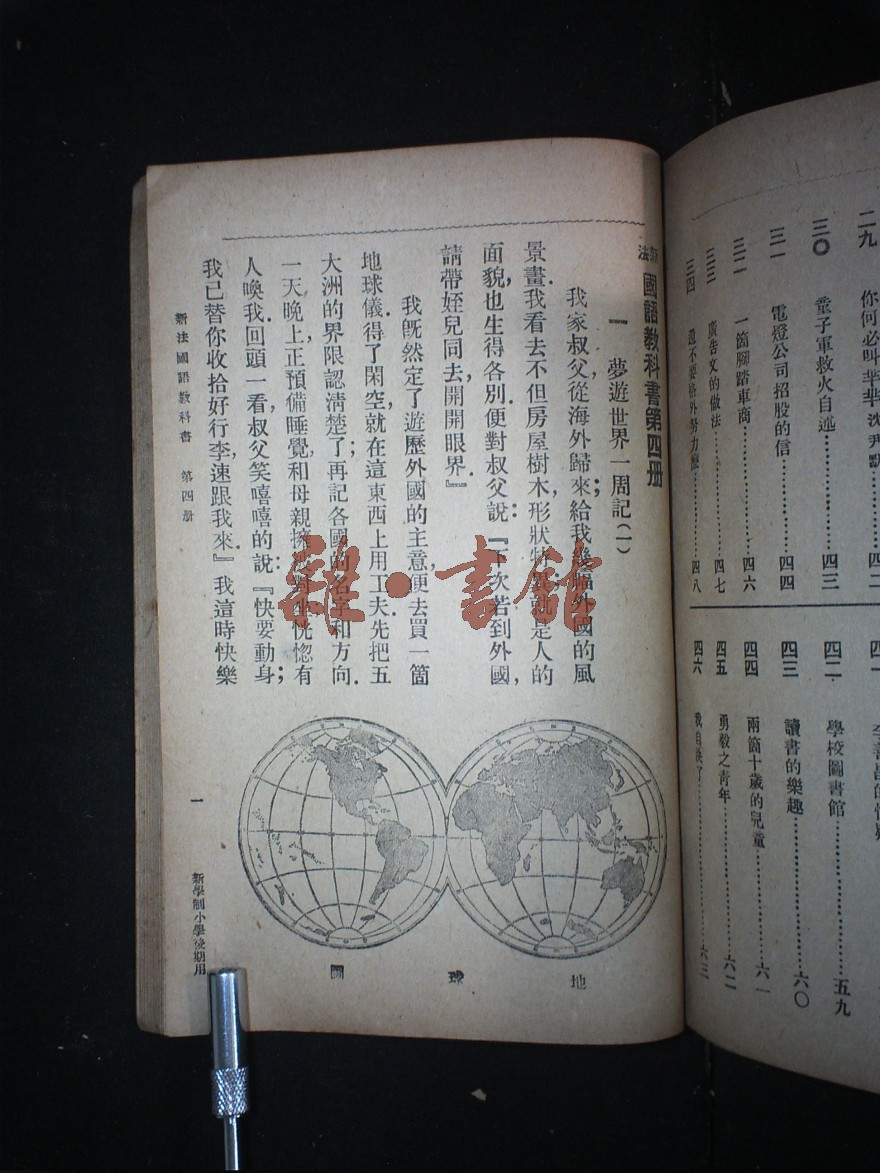 二九 你何必叫 沈尹默……四二
三〇 童子軍救火自述……四三
三一 電燈公司招股的信……四四
三二 一箇腳踏車商……四六
三三 廣告文的做法……四七
三四 還不要格外努力麼……四八
四一 李善昌的
四二 學校圖書館……五九
四三 讀書的樂趣……六〇
四四 兩箇十歲的兒童……六一
四五 勇毅之青年……六二
四六 我自……六三
新法國語教科書第四册
一 夢遊世界一周記(一)
我家叔父從海外歸來,給我幾幅外國的風
景畫.我看去不但房屋樹木,形狀特異;就是人的
面貌,也生得各別.便對叔父說:『下次若到外國,
請帶姪兒同去開開眼界.』
我旣然定了遊歷外國的主意,便去買一箇
地球儀.得了閑空就在這東西上用工夫.先把五
大洲的界限認淸楚了;再記各國的名字和方向.
一天晚上,正預備睡覺,和母親擁被對坐,恍惚有
人喚我.回頭一看,叔父笑嘻嘻的說:『快要動身;
我已替你收拾好行李,速跟我來.』我這時快樂
地球圖
新法國語教科書 第四册
一
新學制小學後期用
雜·書館